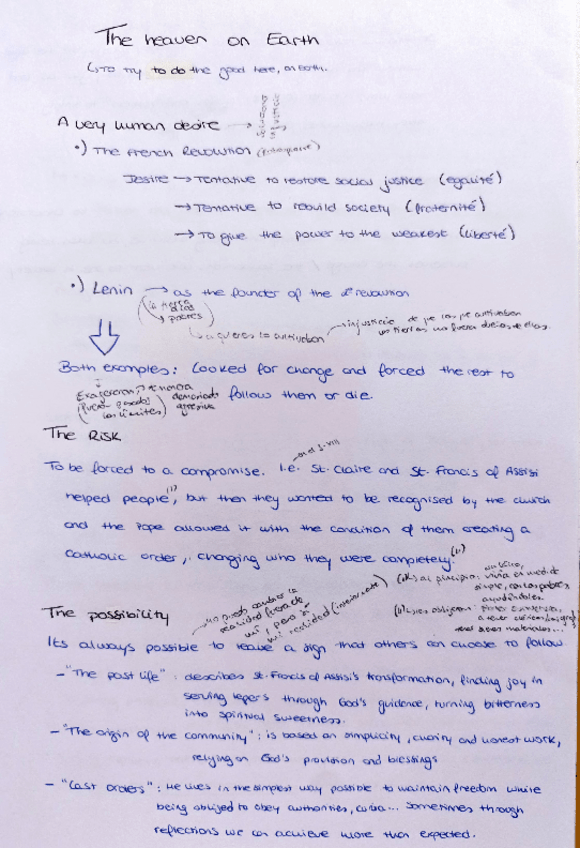 The heaven on Earth
↳To try to do the good here, on earth.
A very human desire →
•) The French Revolution
Desire → Tentative to restore social justice (egalité)
→ Tentative to rebuild society (fraternité)
→ To give the power to the weakest (liberté)
•) Lenin → as the founder of the revolution
(la tierra a los pobres)
↳ a quienes la cultivaban → injusticia de que los que cultivaban
sus tierras no fueran dueños de ellas.
Both examples: Looked for change and forced the rest to
follow them or die.
Exageraron, de manera demasiado agresiva
(fueron pasados los límites)
The Risk
To be forced to a compromise. I.e. St. Claire and St. Francis of Assisi
helped people, but then they wanted to be recognised by the church
and the Pope allowed it with the condition of them creating a
Catholic order, changing who they were completely.
The possibility
no puedo cambiar la realidad fuera de mí, pero sí mi realidad (interiormente)
Its always possible to leave a sign that others can choose to follow.
- "The past life": describes St. Francis of Assisi's transformation, finding joy in
serving lepers through God's guidance, turning bitterness
into spiritual sweetness.
- "The origin of the community": is based on simplicity, charity and honest work,
relying on God's provision and blessings
- "Last orders": He lives in the simplest way possible to maintain freedom while
being obliged to obey authorities, curia... Sometimes through
reflections we can achieve more than expected.